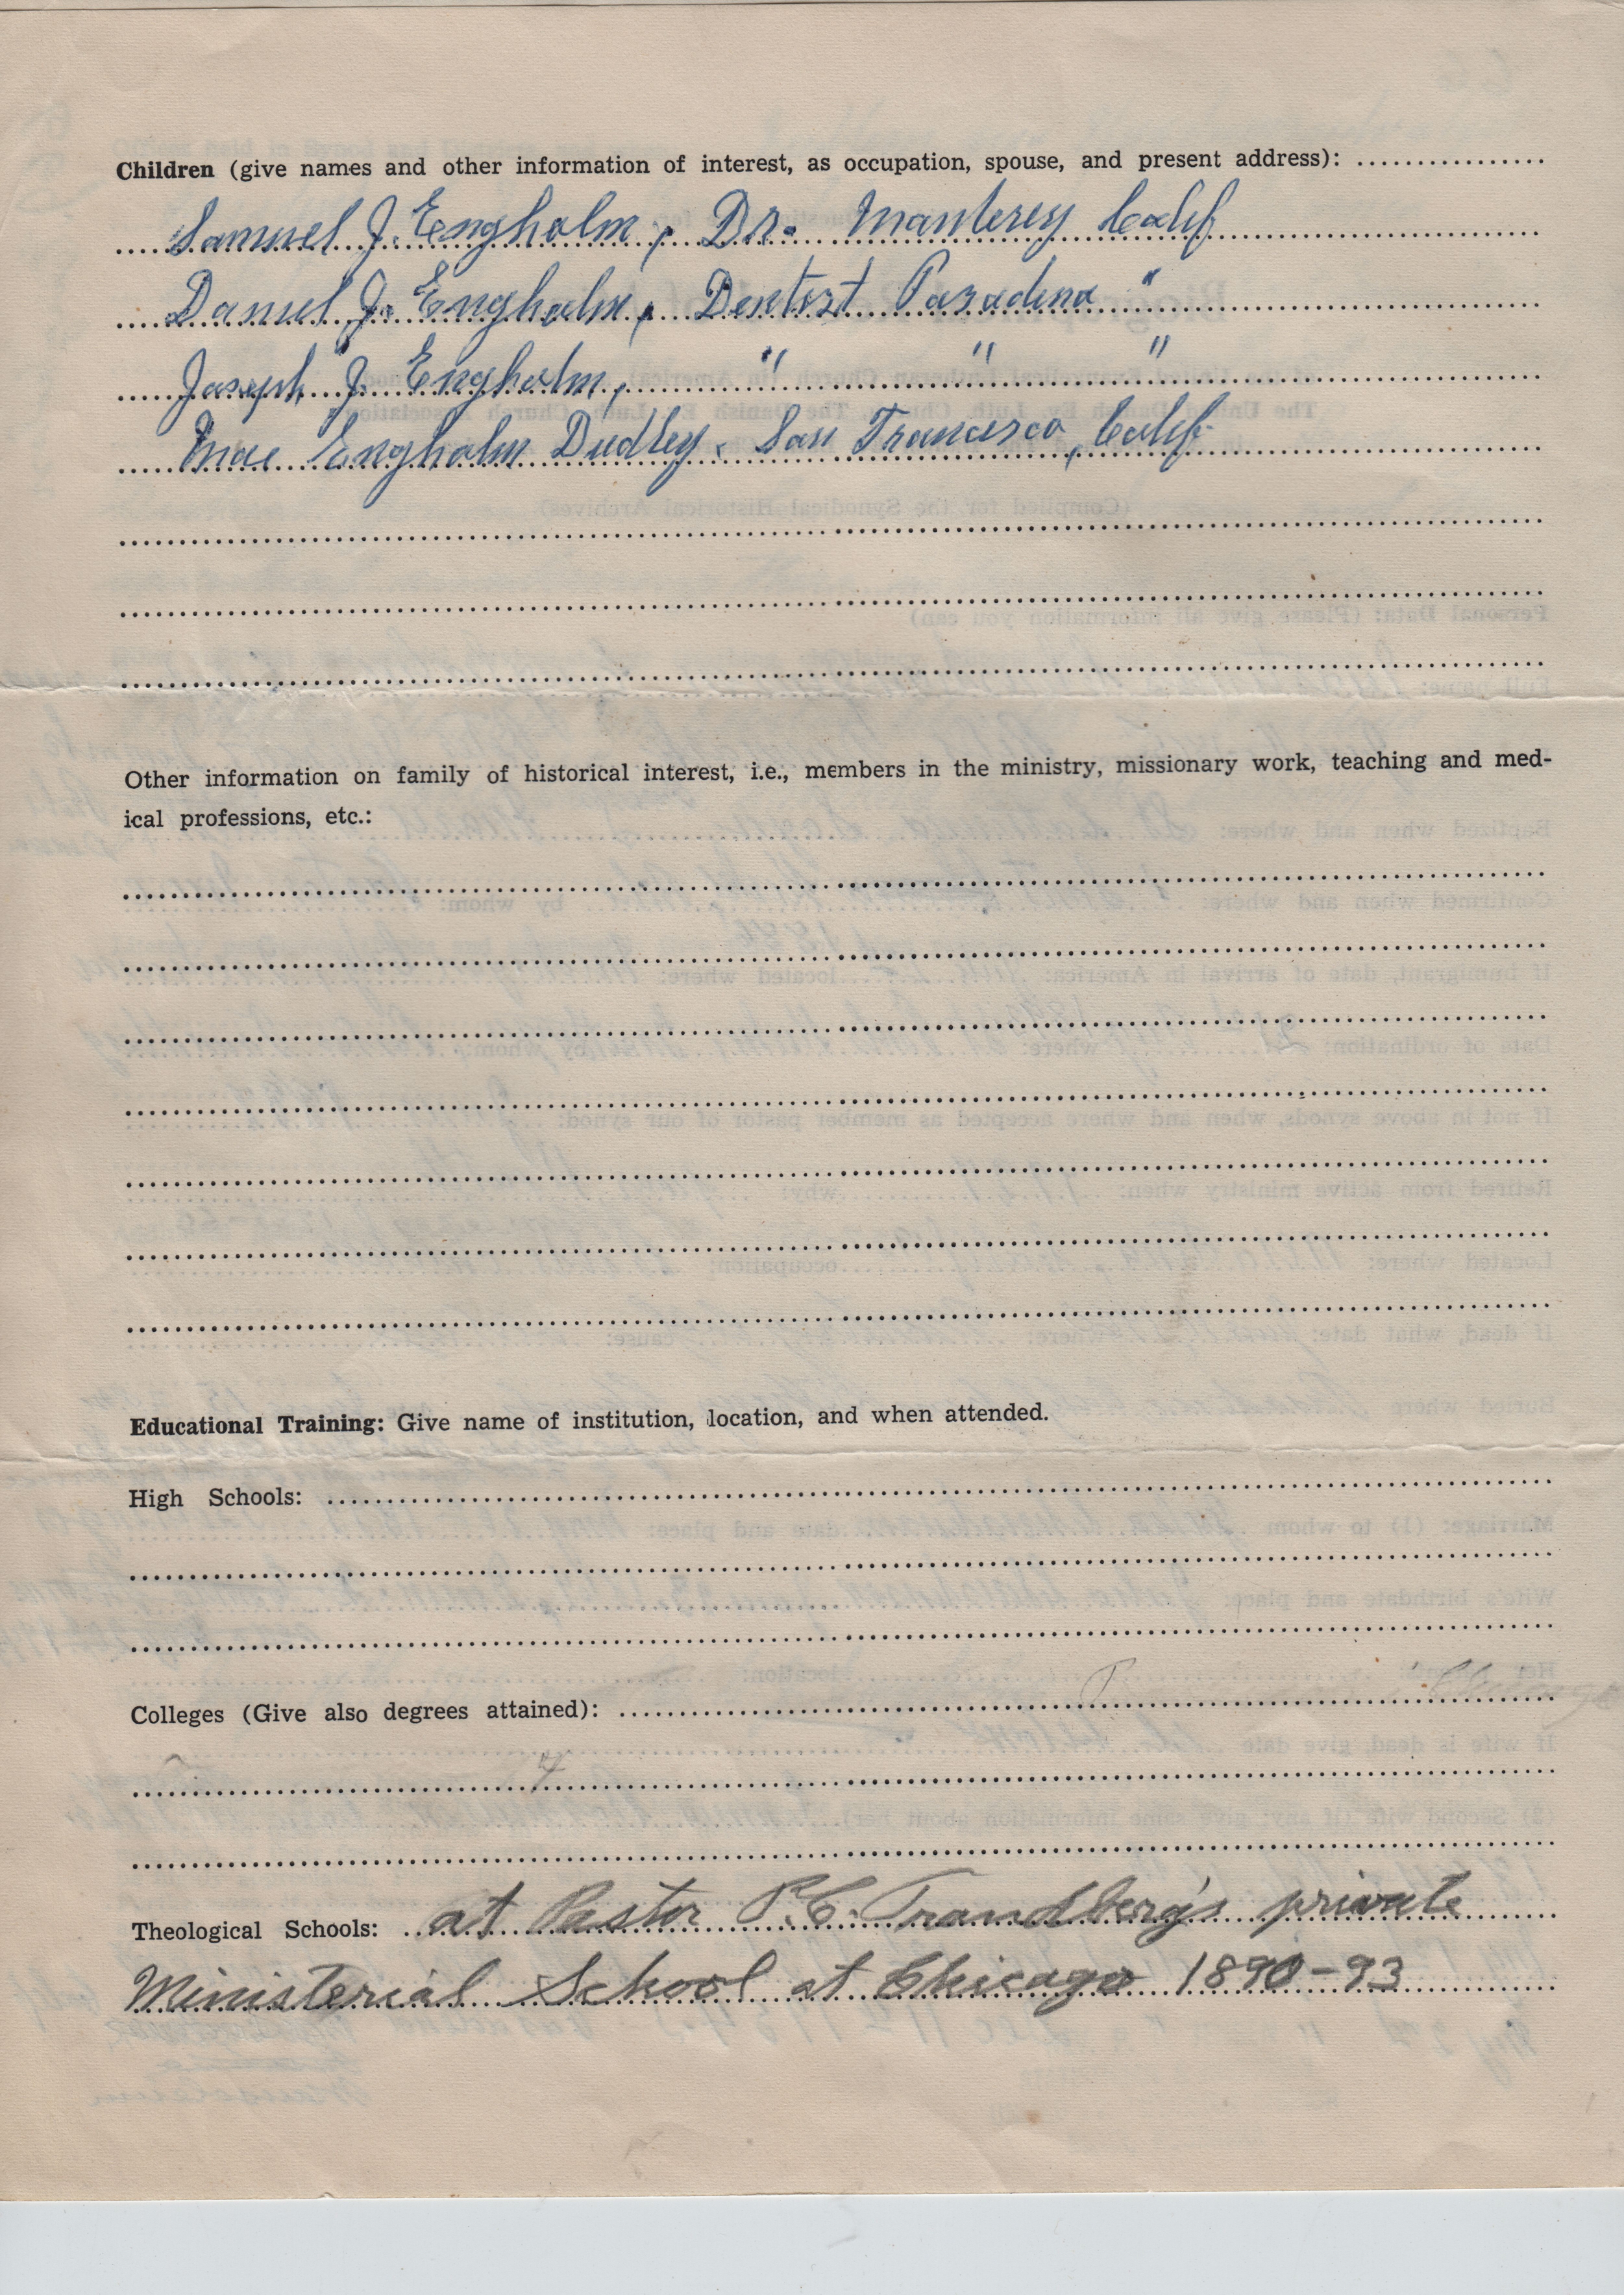 Children (give names and other information of interest, as occupation, spouse, and present address):
Samuel J. Engholm, Dr. Manterey Calif
Daniel J. Engholm, Dentist Pasadena "
Joseph J. Engholm, " " "
Mae Engholm Dudley. San Francisco, Calif-
Other information on family of historical interest, i.e., members in the ministry, missionary work, teaching and med-
ical professions, etc.:
Educational Training: Give name of institution, location, and when attended.
High Schools:
Colleges (Give also degrees attained):
Theological Schools: at Pastor P.C. Trandberg's private
Ministerial School at Chicago 1890-93